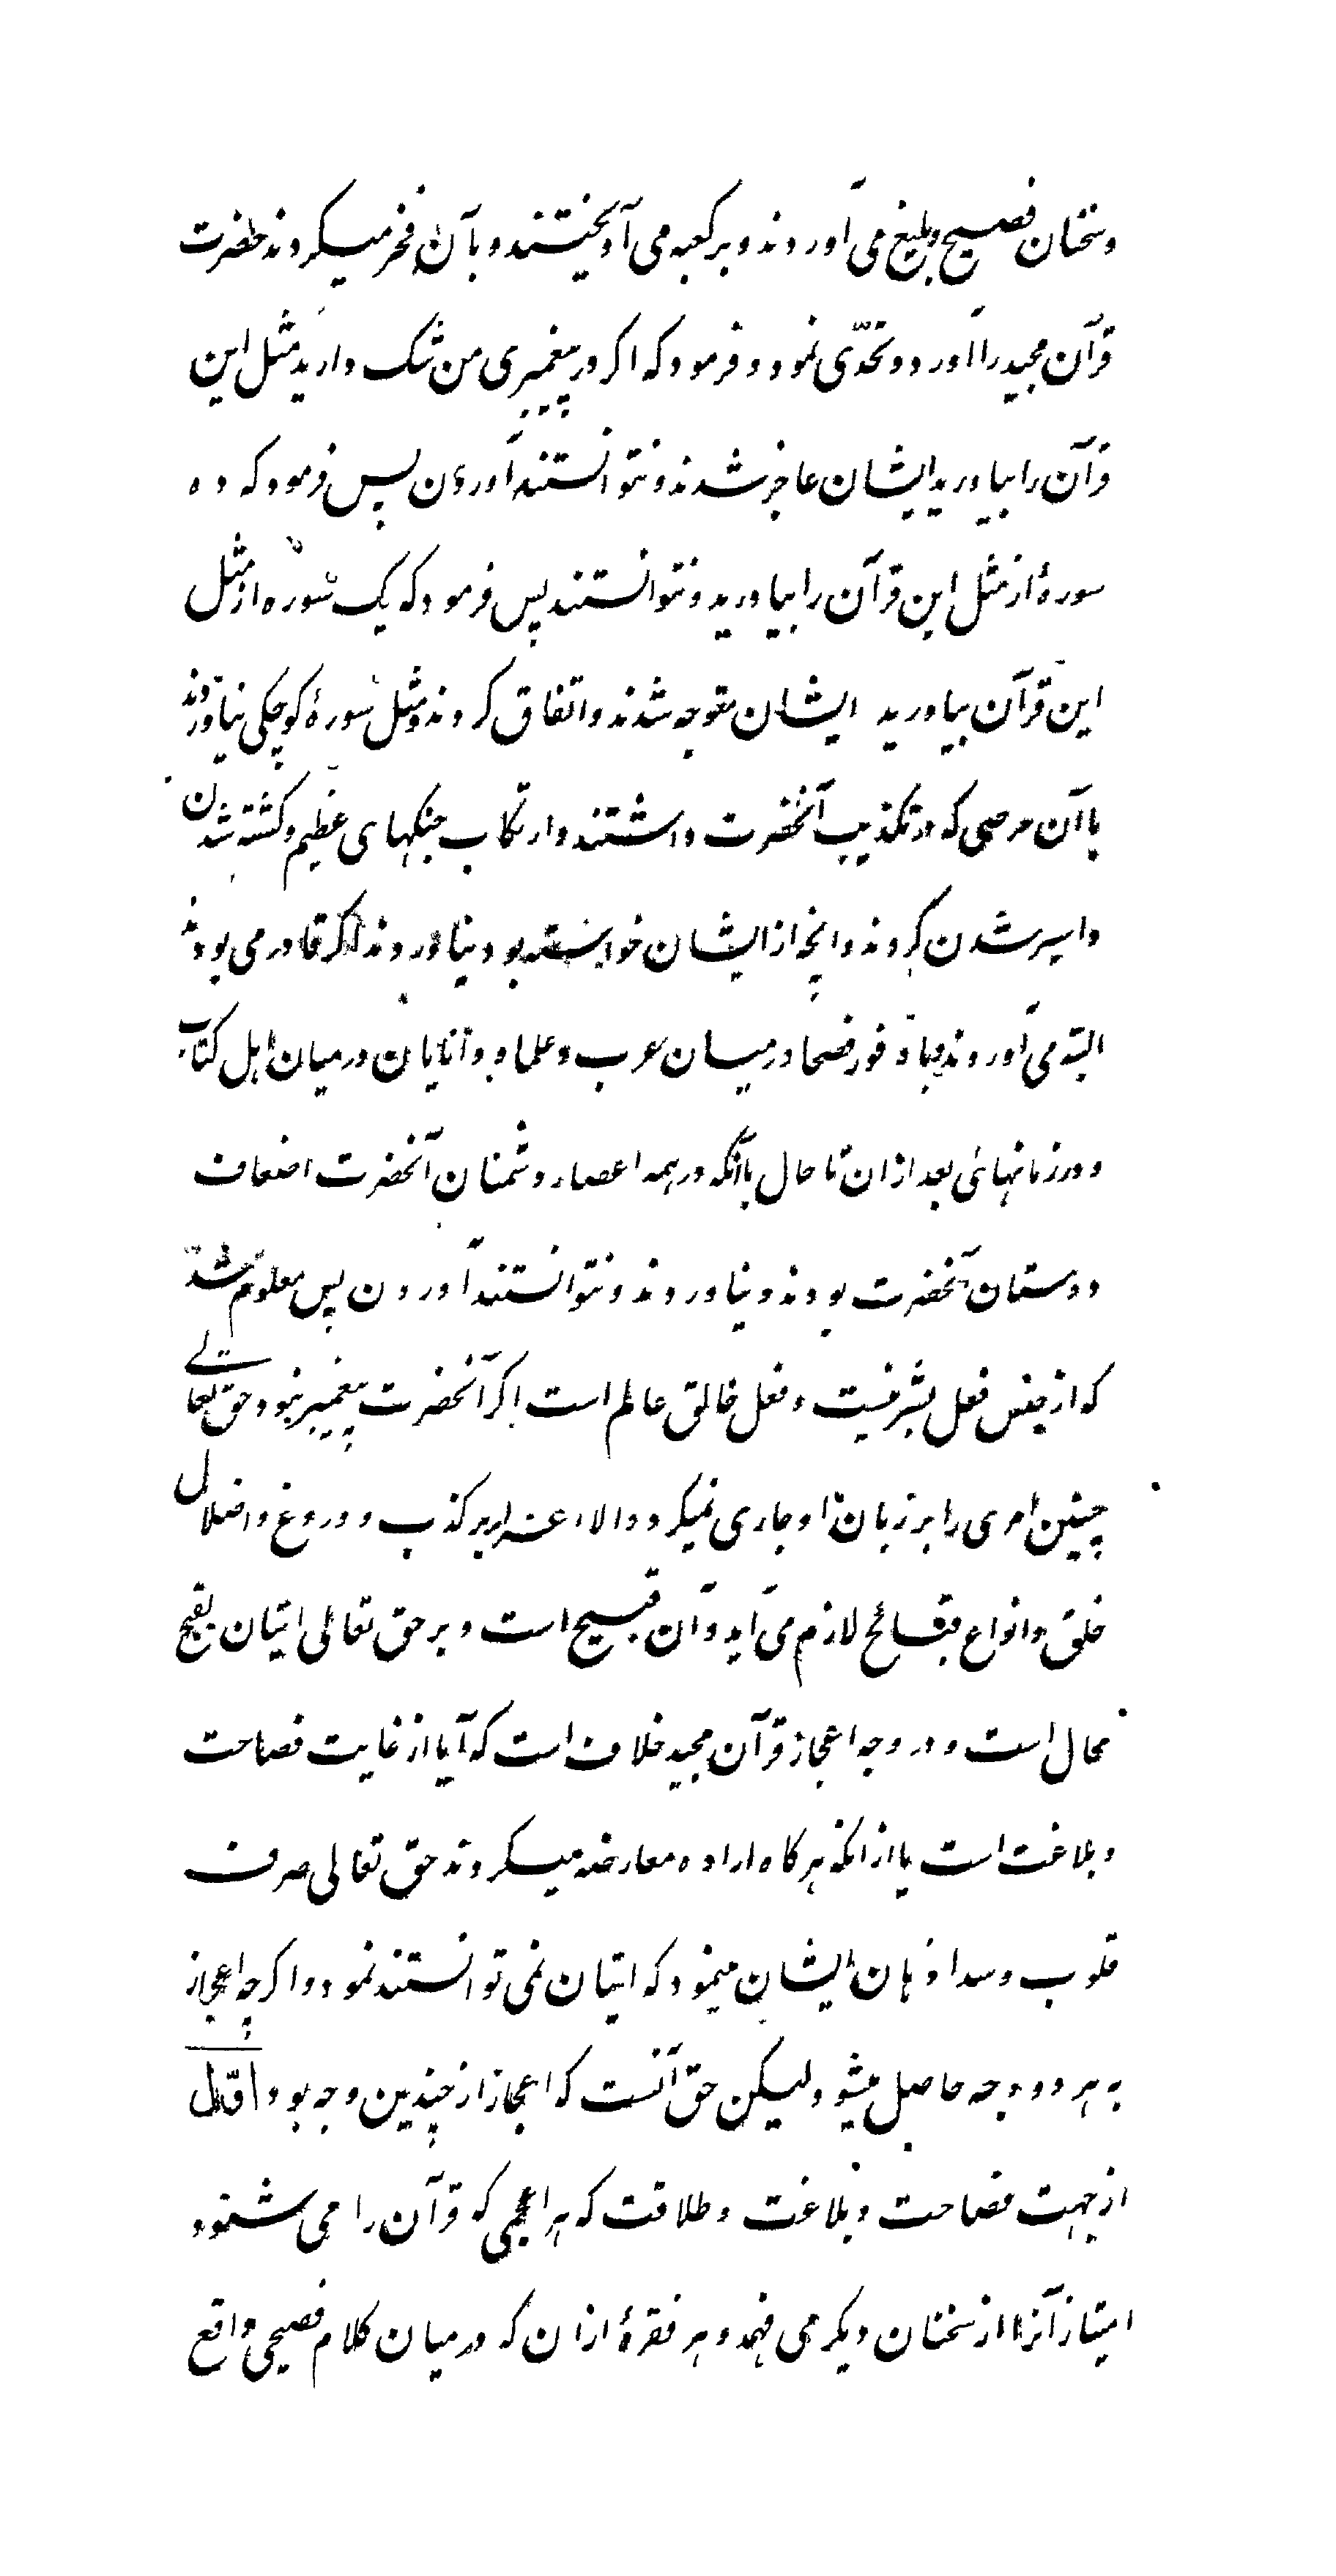 و سخنان فصیح و بلیغ می آوردند و بر کعبه می آویختند و بآن فخر میکردند حضرت
قرآن مجید را آورد و تحدّی نمود و فرمود که اکر در پیغمبری من شک دارید مثل این
قرآن را بیاورید ایشان عاجز شدند و نتوانستند آوردن پس فرمود که ده
سورهٔ از مثل این قرآن را بیاورید و نتوانستند پس فرمود که یک سوره از مثل
این قرآن بیاورید ایشان متوجه شدند و اتفاق کردند و مثل سورهٔ کوچکی نیاوردند
با آن حرصی که در تکذیب آنحضرت داشتند و ارتکاب جنکهای عظیم و کشته شدن
و اسیر شدن کردند و آنچه از ایشان خواسته بود نیاوردند اکر قادر می بودند
البته می آوردند با وفور فصحا در میان عرب و علما و دانایان در میان اهل کتاب
و در زمانهائی بعد از ان تا حال باآنکه در همه اعصار دشمنان آنحضرت اضعاف
دوستان آنحضرت بودند و نیاوردند و نتوانستند آوردن پس معلوم شد
که از جنس فعل بشر نیست و فعل خالق عالم است اکر آنحضرت پیغمبر نبود حق تعالی
چنین امری را بر زبان او جاری نمیکرد و الا اغراء بر کذب و دروغ و اضلال
خلق و انواع قبائح لازم می آید و آن قبیح است و بر حق تعالی اتیان بقبیح
محال است و در وجه اعجاز قرآن مجید خلاف است که آیا از غایت فصاحت
و بلاغت است یا از انکه هر کاه اراده معارضه میکردند حق تعالی صرف
قلوب و سد اذهان ایشان مینمود که اتیان نمی توانستند نمود و اکرچه اعجاز
به هر دو وجه حاصل میشود لیکن حق آنست که اعجاز از چندین وجه بود اوّل
از جهت فصاحت و بلاغت و طلاقت که هر اعجمی که قرآن را می شنود
امتیاز آنرا از سخنان دیکر می فهمد و هر فقرهٔ از ان که در میان کلام فصیحی واقع